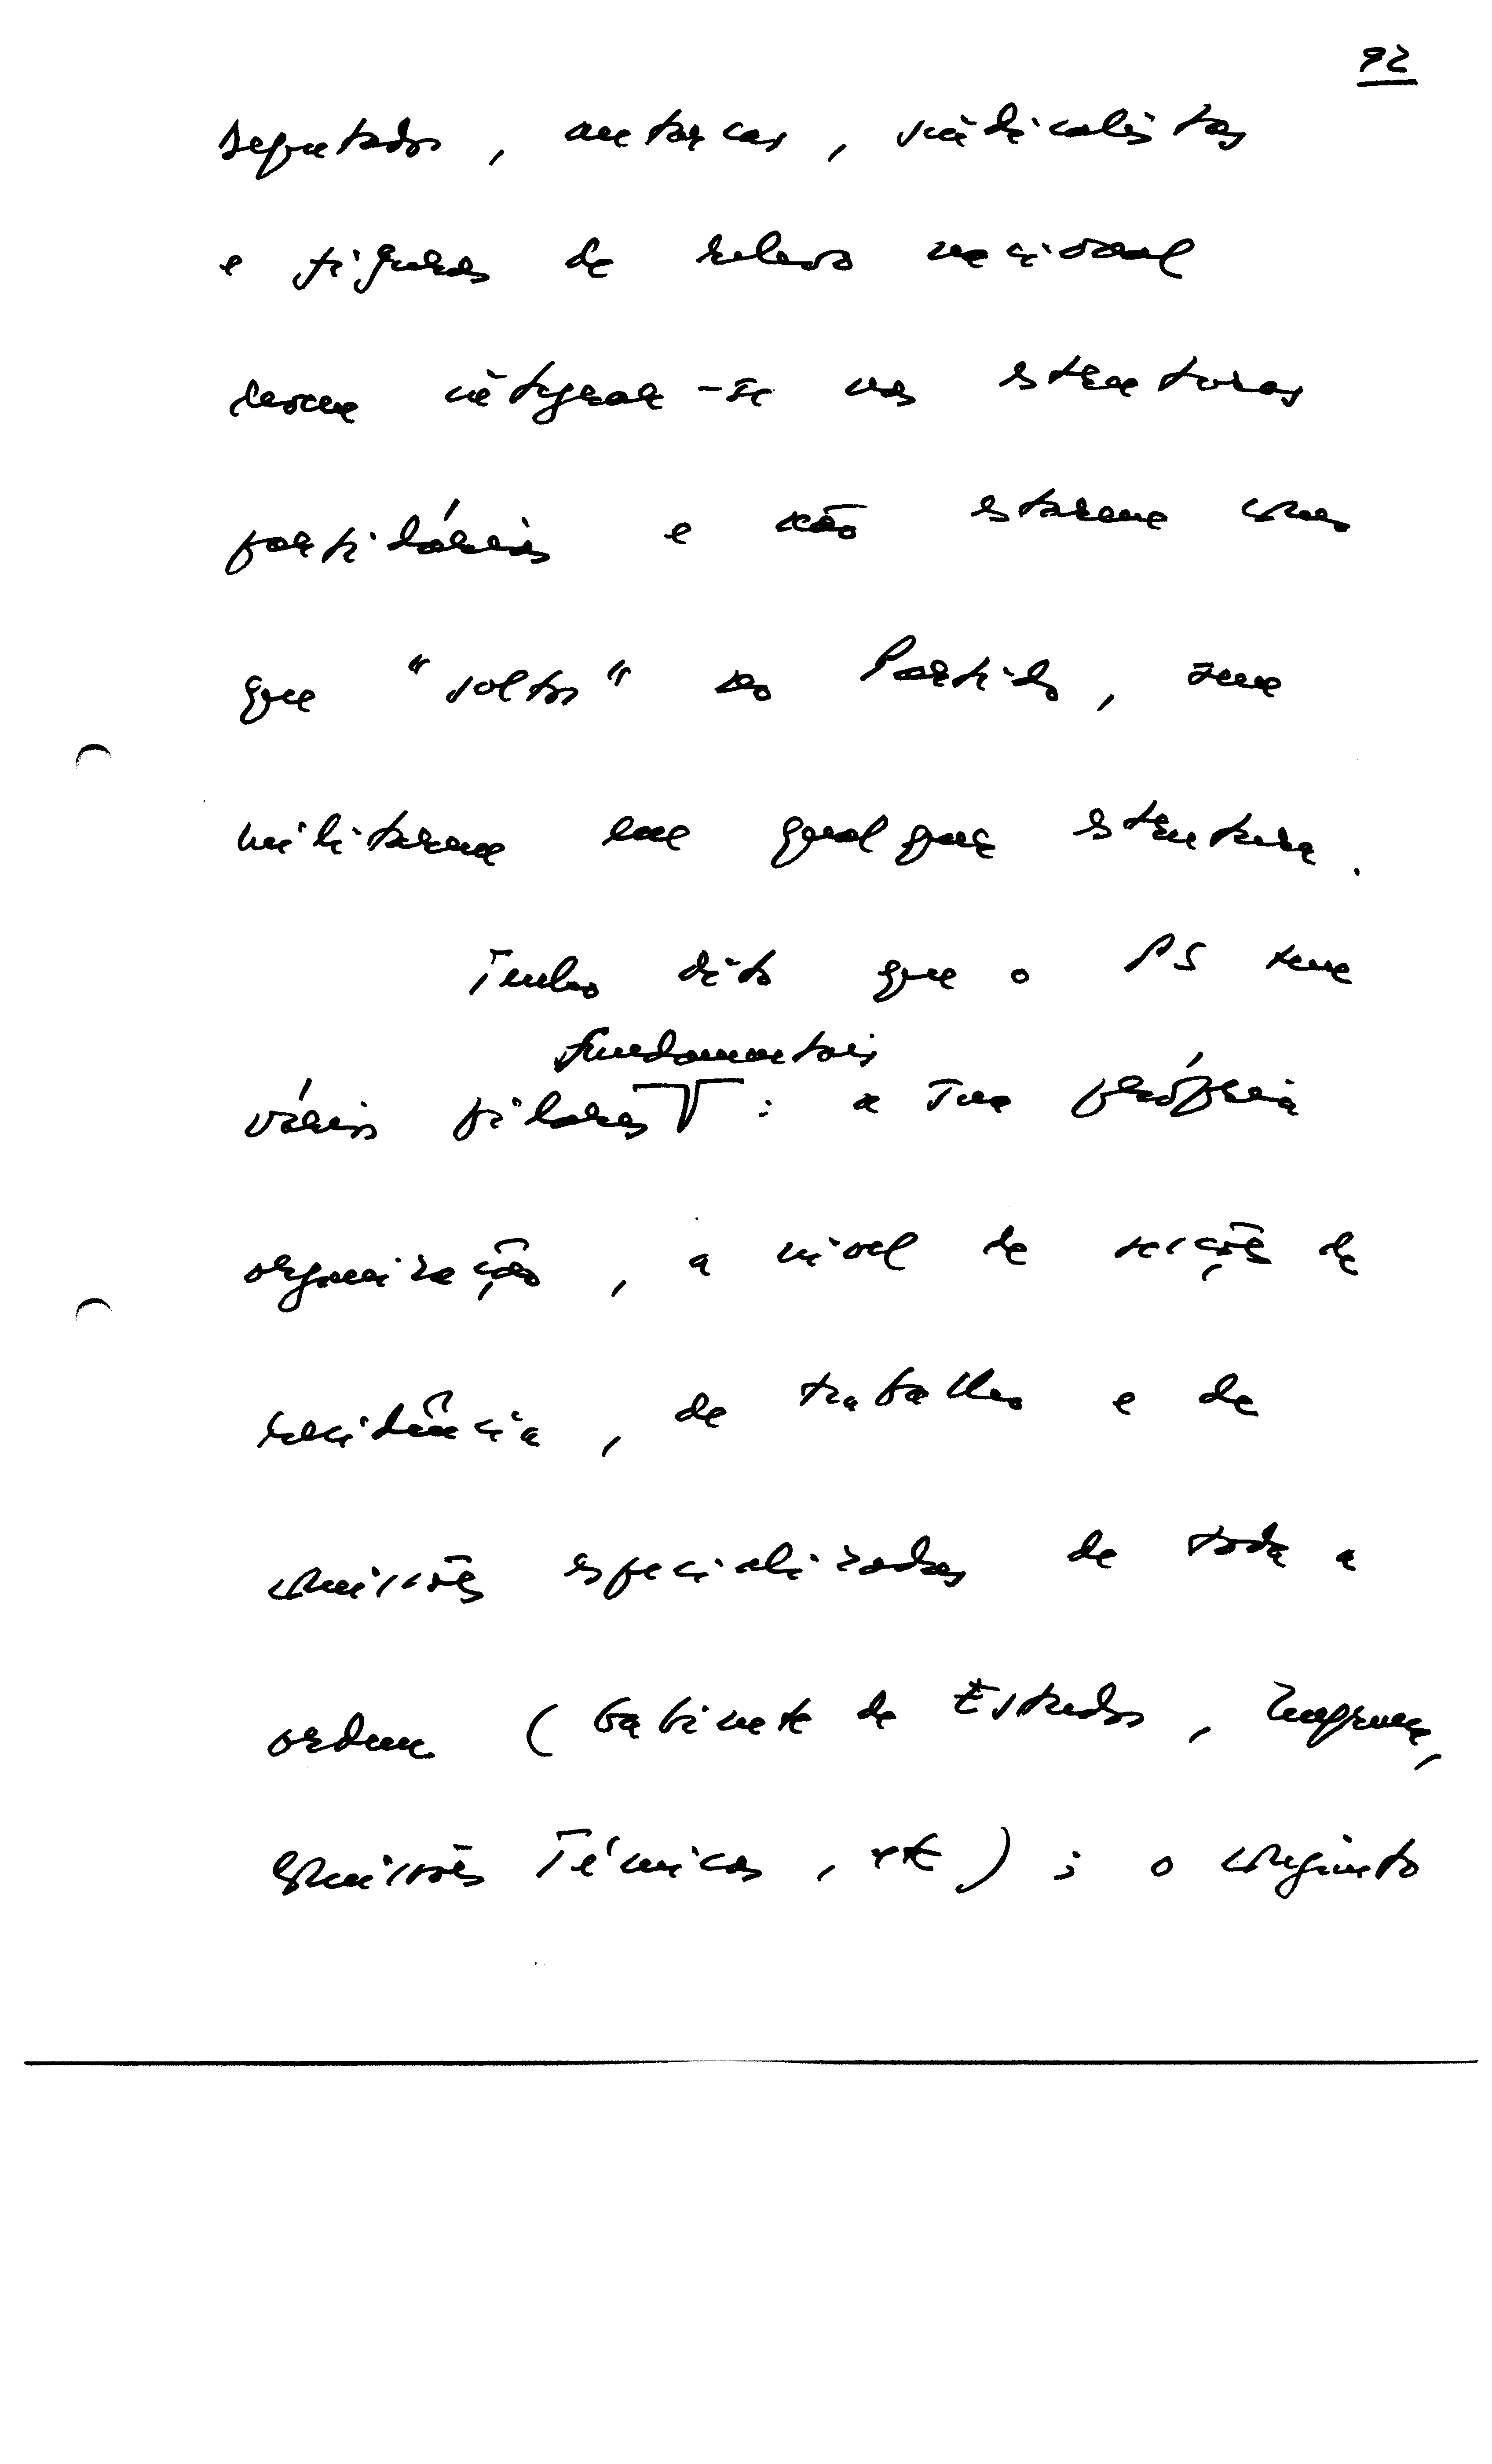 92
deputados, autarcas, sindicalistas
e figuras de relevo nacional
devem integrar-se nas estruturas
partidárias e não estarem como
que "soltos" no Partido, sem
militarem em qualquer estrutura.
Tenho dito que o PS tem
fundamentais
vários pilares : a sua própria
organização, a nível de secções de
residência, de trabalho e de
comissões especializadas de toda a
ordem (Gabinete de Estudos, Imprensa,
Comissões Técnicas, etc) ; o conjunto